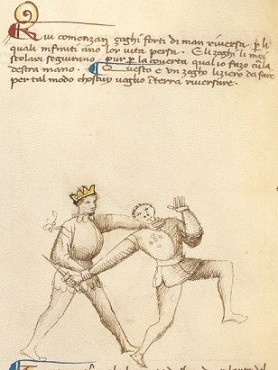 Qui comenzan zoghi forti di man riversa. p li
quali infiniti ano lor vita persa. E li zoghi li mei
scolari seguirano pur p la coverta qual io fazo cu la
destra mano. Questo e un zogho liziero da fare
per tal modo chostuy voglio i terra riversare.